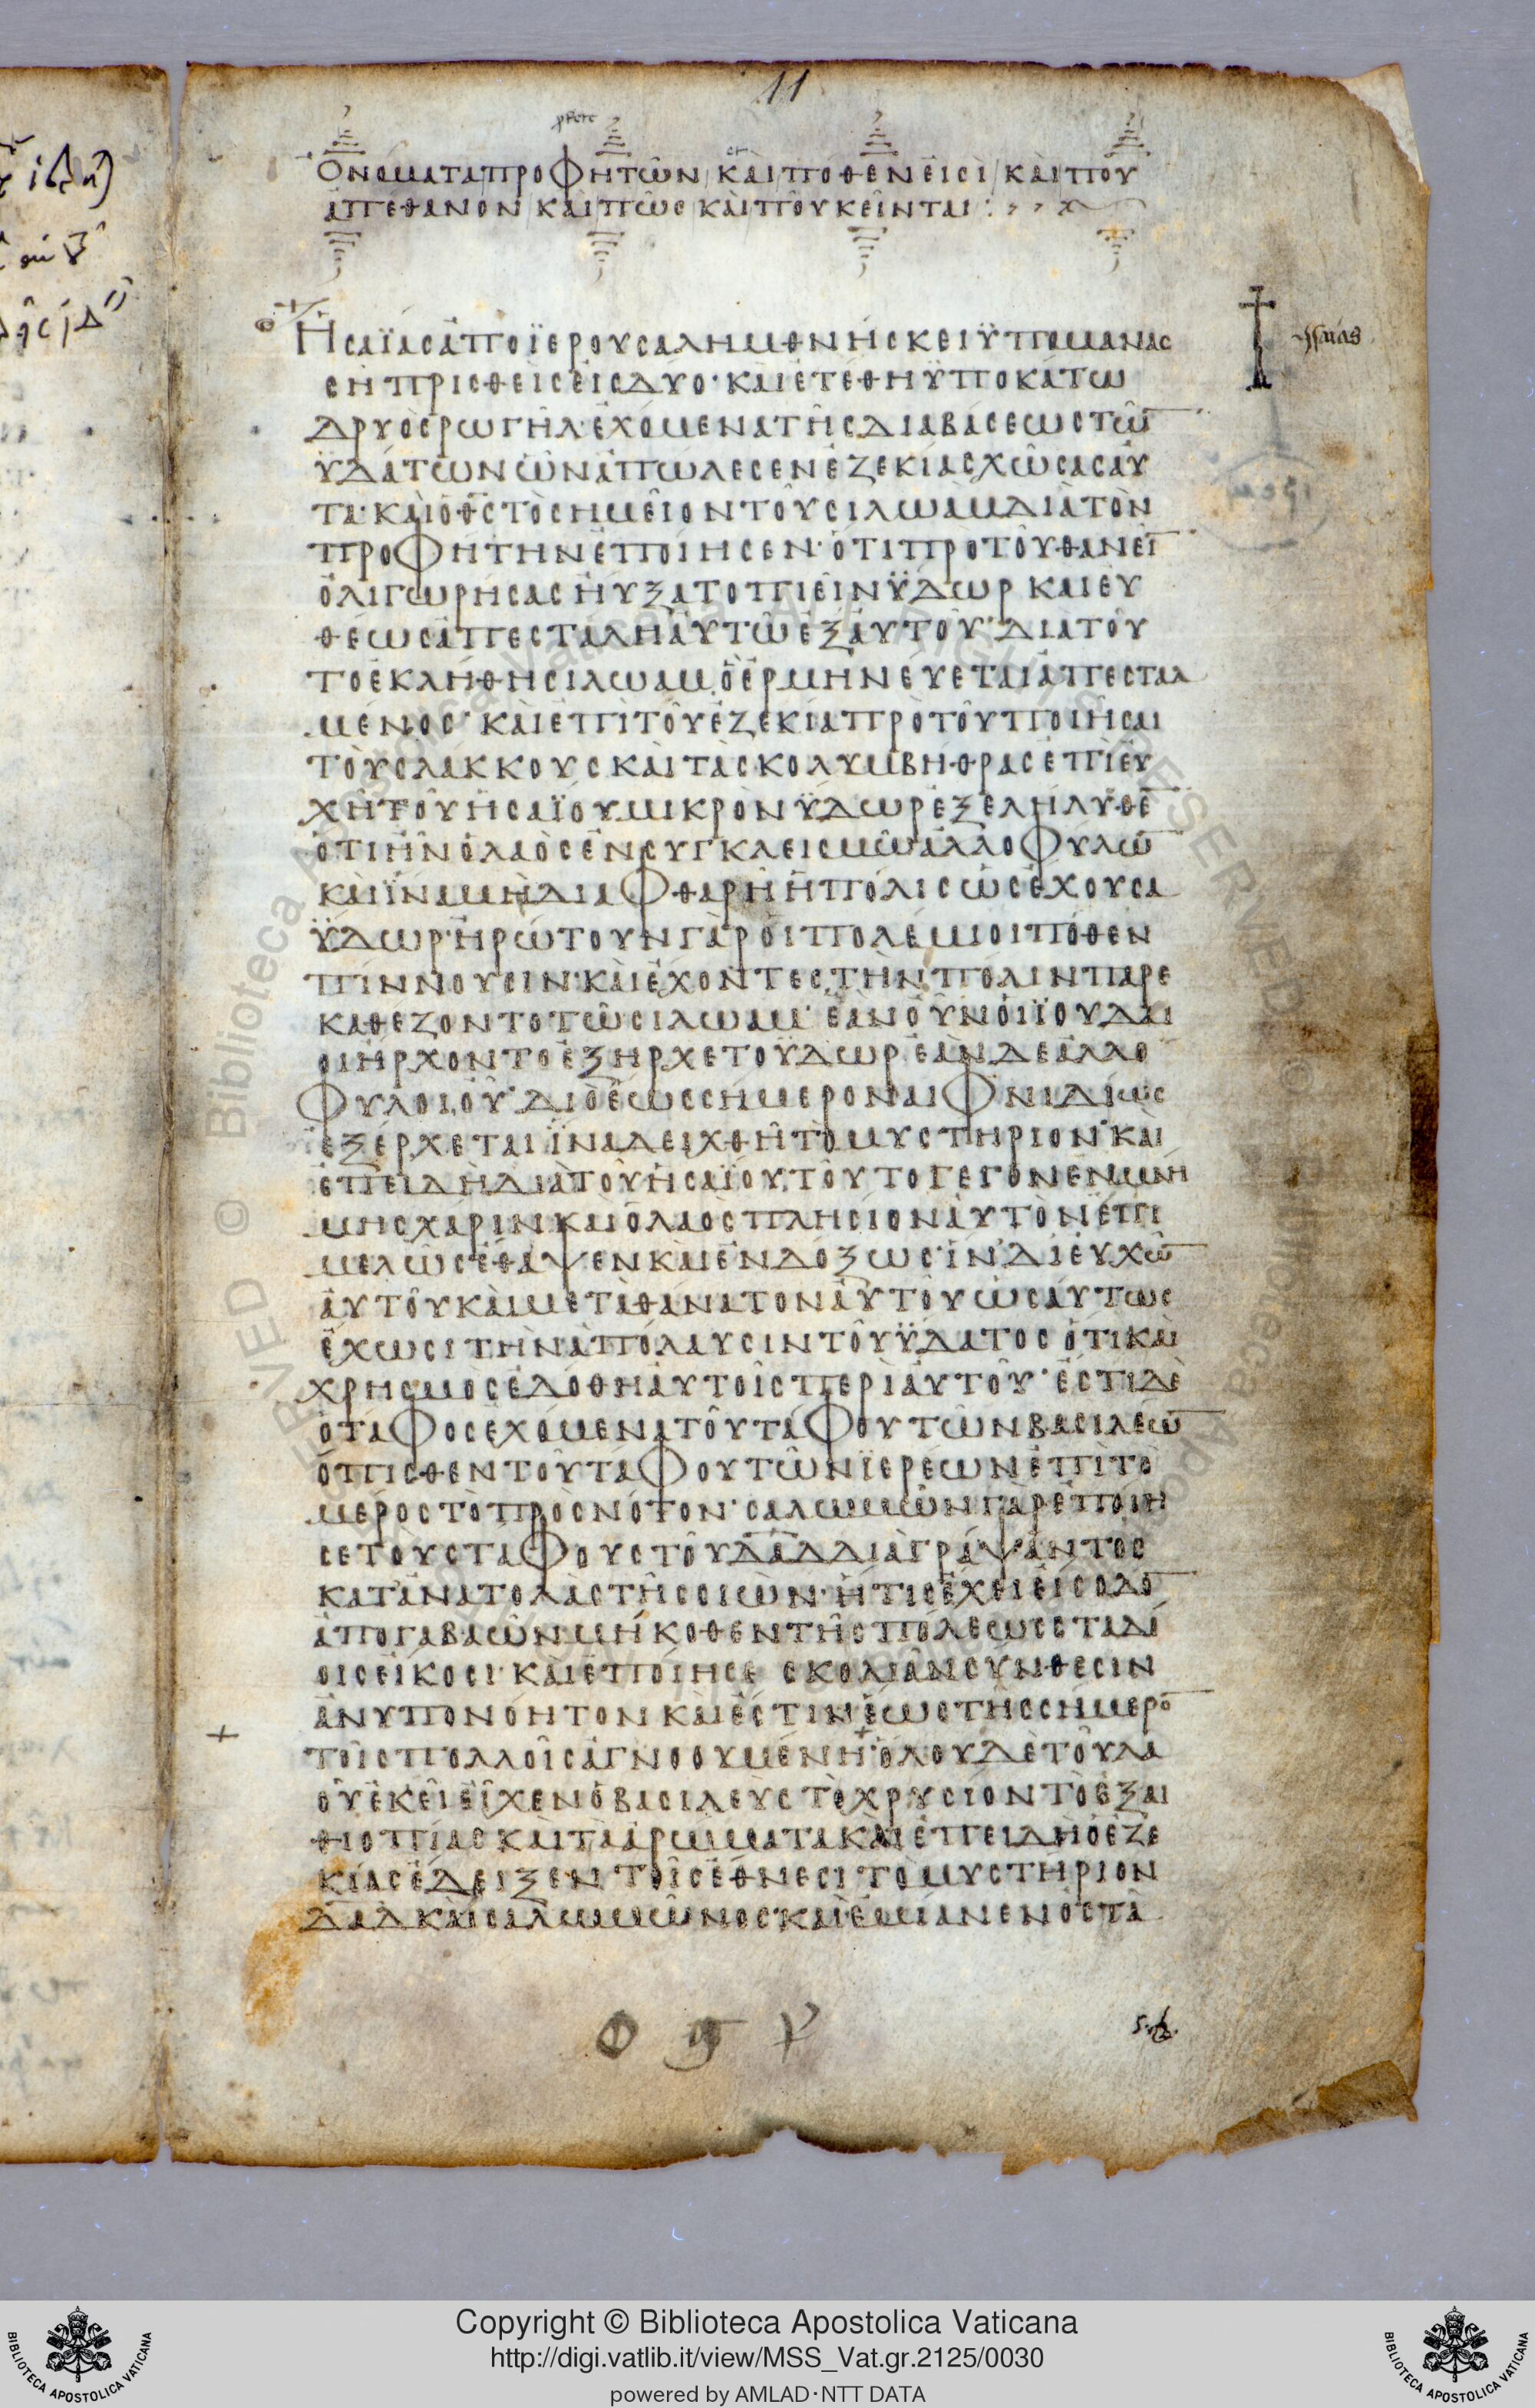 11
ΟΝΟΜΑΤΑΠΡΟΦΗΤΩΝ ΚΑΙΠΟΘΕΝΕΙΣΙ ΚΑΙΠΟΥ
ΑΠΕΘΑΝΟΝ ΚΑΙΠΩΣ ΚΑΙΠΟΥΚΕΙΝΤΑΙ
ΗΣΑΪΑΣΑΠΟΪΕΡΟΥΣΑΛΗΜΘΝΗΣΚΕΙΫΠΟΜΑΝΑΣ
ΣΗΠΡΙΣΘΕΙΣΕΙΣΔΥΟ·ΚΑΙΕΤΕΘΗΫΠΟΚΑΤΩ
ΔΡΥΟΣΡΩΓΗΛΕΧΟΜΕΝΑΤΗΣΔΙΑΒΑΣΕΩΣΤΩ̅
ΫΔΑΤΩΝΩΝΑΠΩΛΕΣΕΝΕΖΕΚΙΑΣΧΩΣΑΣΑΥ
ΤΑ·ΚΑΙΟΘ̅Σ̅ΤΟΣΗΜΕΙΟΝΤΟΥΣΙΛΩΑΜΔΙΑΤΟΝ
ΠΡΟΦΗΤΗΝΕΠΟΙΗΣΕΝ·ΟΤΙΠΡΟΤΟΥΘΑΝΕΙ̅
ΟΛΙΓΩΡΗΣΑΣΗΥΞΑΤΟΠΙΕΙΝΫΔΩΡ ΚΑΙΕΥ
ΘΕΩΣΑΠΕΣΤΑΛΗΑΥΤΩΕΞΑΥΤΟΥ·ΔΙΑΤΟΥ
ΤΟΕΚΛΗΘΗΣΙΛΩΑΜΟΕΡΜΗΝΕΥΕΤΑΙΑΠΕΣΤΑΛ
ΜΕΝΟΣ·ΚΑΙΕΠΙΤΟΥΕΖΕΚΙΑΠΡΟΤΟΥΠΟΙΗΣΑΙ
ΤΟΥΣΛΑΚΚΟΥΣΚΑΙΤΑΣΚΟΛΥΜΒΗΘΡΑΣΕΠΙΕΥ
ΧΗΤΟΥΗΣΑΪΟΥΜΙΚΡΟΝΫΔΩΡΕΞΕΛΗΛΥΘΕ̅
ΟΤΙΗΝΟΛΑΟΣΕΝΣΥΓΚΛΕΙΣΜΩΑΛΛΟΦΥΛΩ̅
ΚΑΙΪΝΑΜΗΔΙΑΦΘΑΡΗΗΠΟΛΙΣΩΣΕΧΟΥΣΑ
ΫΔΩΡ·ΗΡΩΤΟΥΝΓΑΡΟΙΠΟΛΕΜΙΟΙΠΟΘΕΝ
ΠΙΝΝΟΥΣΙΝ·ΚΑΙΕΧΟΝΤΕΣΤΗΝΠΟΛΙΝΠΑΡΕ
ΚΑΘΕΖΟΝΤΟΤΩΣΙΛΩΑΜ·ΕΑΝΟΥΝΟΙΪΟΥΔΑΙ
ΟΙΗΡΧΟΝΤΟΕΞΗΡΧΕΤΟΫΔΩΡΕΑΝΔΕΑΛΛΟ
ΦΥΛΟΙΟΥ·ΔΙΟΕΩΣΣΗΜΕΡΟΝΑΙΦΝΙΔΙΩΣ
ΕΞΕΡΧΕΤΑΙΪΝΑΔΕΙΧΘΗΤΟΜΥΣΤΗΡΙΟΝ·ΚΑΙ
ΕΠΕΙΔΗΔΙΑΤΟΥΗΣΑΪΟΥΤΟΥΤΟΓΕΓΟΝΕΝΜΝΗ
ΜΗΣΧΑΡΙΝΚΑΙΟΛΑΟΣΠΛΗΣΙΟΝΑΥΤΟΝΕΠΙ
ΜΕΛΩΣΕΘΑΨΕΝΚΑΙΕΝΔΟΞΩΣ·ΙΝΔΙΕΥΧΩ̅
ΑΥΤΟΥΚΑΙΜΕΤΑΘΑΝΑΤΟΝΑΥΤΟΥΩΣΑΥΤΩΣ
ΕΧΩΣΙΤΗΝΑΠΟΛΑΥΣΙΝΤΟΥΫΔΑΤΟΣ ΟΤΙΚΑΙ
ΧΡΗΣΜΟΣΕΔΟΘΗΑΥΤΟΙΣΠΕΡΙΑΥΤΟΥ·ΕΣΤΙΔΕ
ΟΤΑΦΟΣΕΧΟΜΕΝΑΤΟΥΤΑΦΟΥΤΩΝΒΑΣΙΛΕΩ̅
ΟΠΙΣΘΕΝΤΟΥΤΑΦΟΥΤΩΝΪΕΡΕΩΝΕΠΙΤΟ
ΜΕΡΟΣΤΟΠΡΟΣΝΟΤΟΝ·ΣΑΛΩΜΩΝΓΑΡΕΠΟΙΗ
ΣΕΤΟΥΣΤΑΦΟΥΣΤΟΥΔ̅Α̅Δ̅ΔΙΑΓΡΑΨΑΝΤΟΣ
ΚΑΤΑΝΑΤΟΛΑΣΤΗΣΣΙΩΝ·ΗΤΙΣΕΧΕΙΕΙΣΟΔΟ̅
ΑΠΟΓΑΒΑΩΝΜΗΚΟΘΕΝΤΗΣΠΟΛΕΩΣΣΤΑΔΙ
ΟΙΣΕΙΚΟΣΙ·ΚΑΙΕΠΟΙΗΣΕ ΣΚΟΛΙΑΝΣΥΝΘΕΣΙΝ
ΑΝΥΠΟΝΟΗΤΟΝΚΑΙΕΣΤΙΝΕΩΣΤΗΣΣΗΜΕΡΟ̅
ΤΟΙΣΠΟΛΛΟΙΣΑΓΝΟΟΥΜΕΝΗ·ΟΛΟΥΔΕΤΟΥΛΑ
ΟΥΕΚΕΙΕΙΧΕΝΟΒΑΣΙΛΕΥΣΤΟΧΡΥΣΙΟΝΤΟΕΞΑΙ
ΘΙΟΠΙΑΣΚΑΙΤΑΑΡΩΜΑΤΑΚΑΙΕΠΕΙΔΗΟΕΖΕ
ΚΙΑΣΕΔΕΙΞΕΝΤΟΙΣΕΘΝΕΣΙΤΟΜΥΣΤΗΡΙΟΝ
Δ̅Α̅Δ̅ΚΑΙΣΑΛΩΜΩΝΟΣ·ΚΑΙΕΜΙΑΝΕΝΟΣΤΑ
Copyright © Biblioteca Apostolica Vaticana
http://digi.vatlib.it/view/MSS_Vat.gr.2125/0030
powered by AMLAD·NTT DATA
BIBLIOTECA APOSTOLICA VATICANA
BIBLIOTECA APOSTOLICA VATICANA